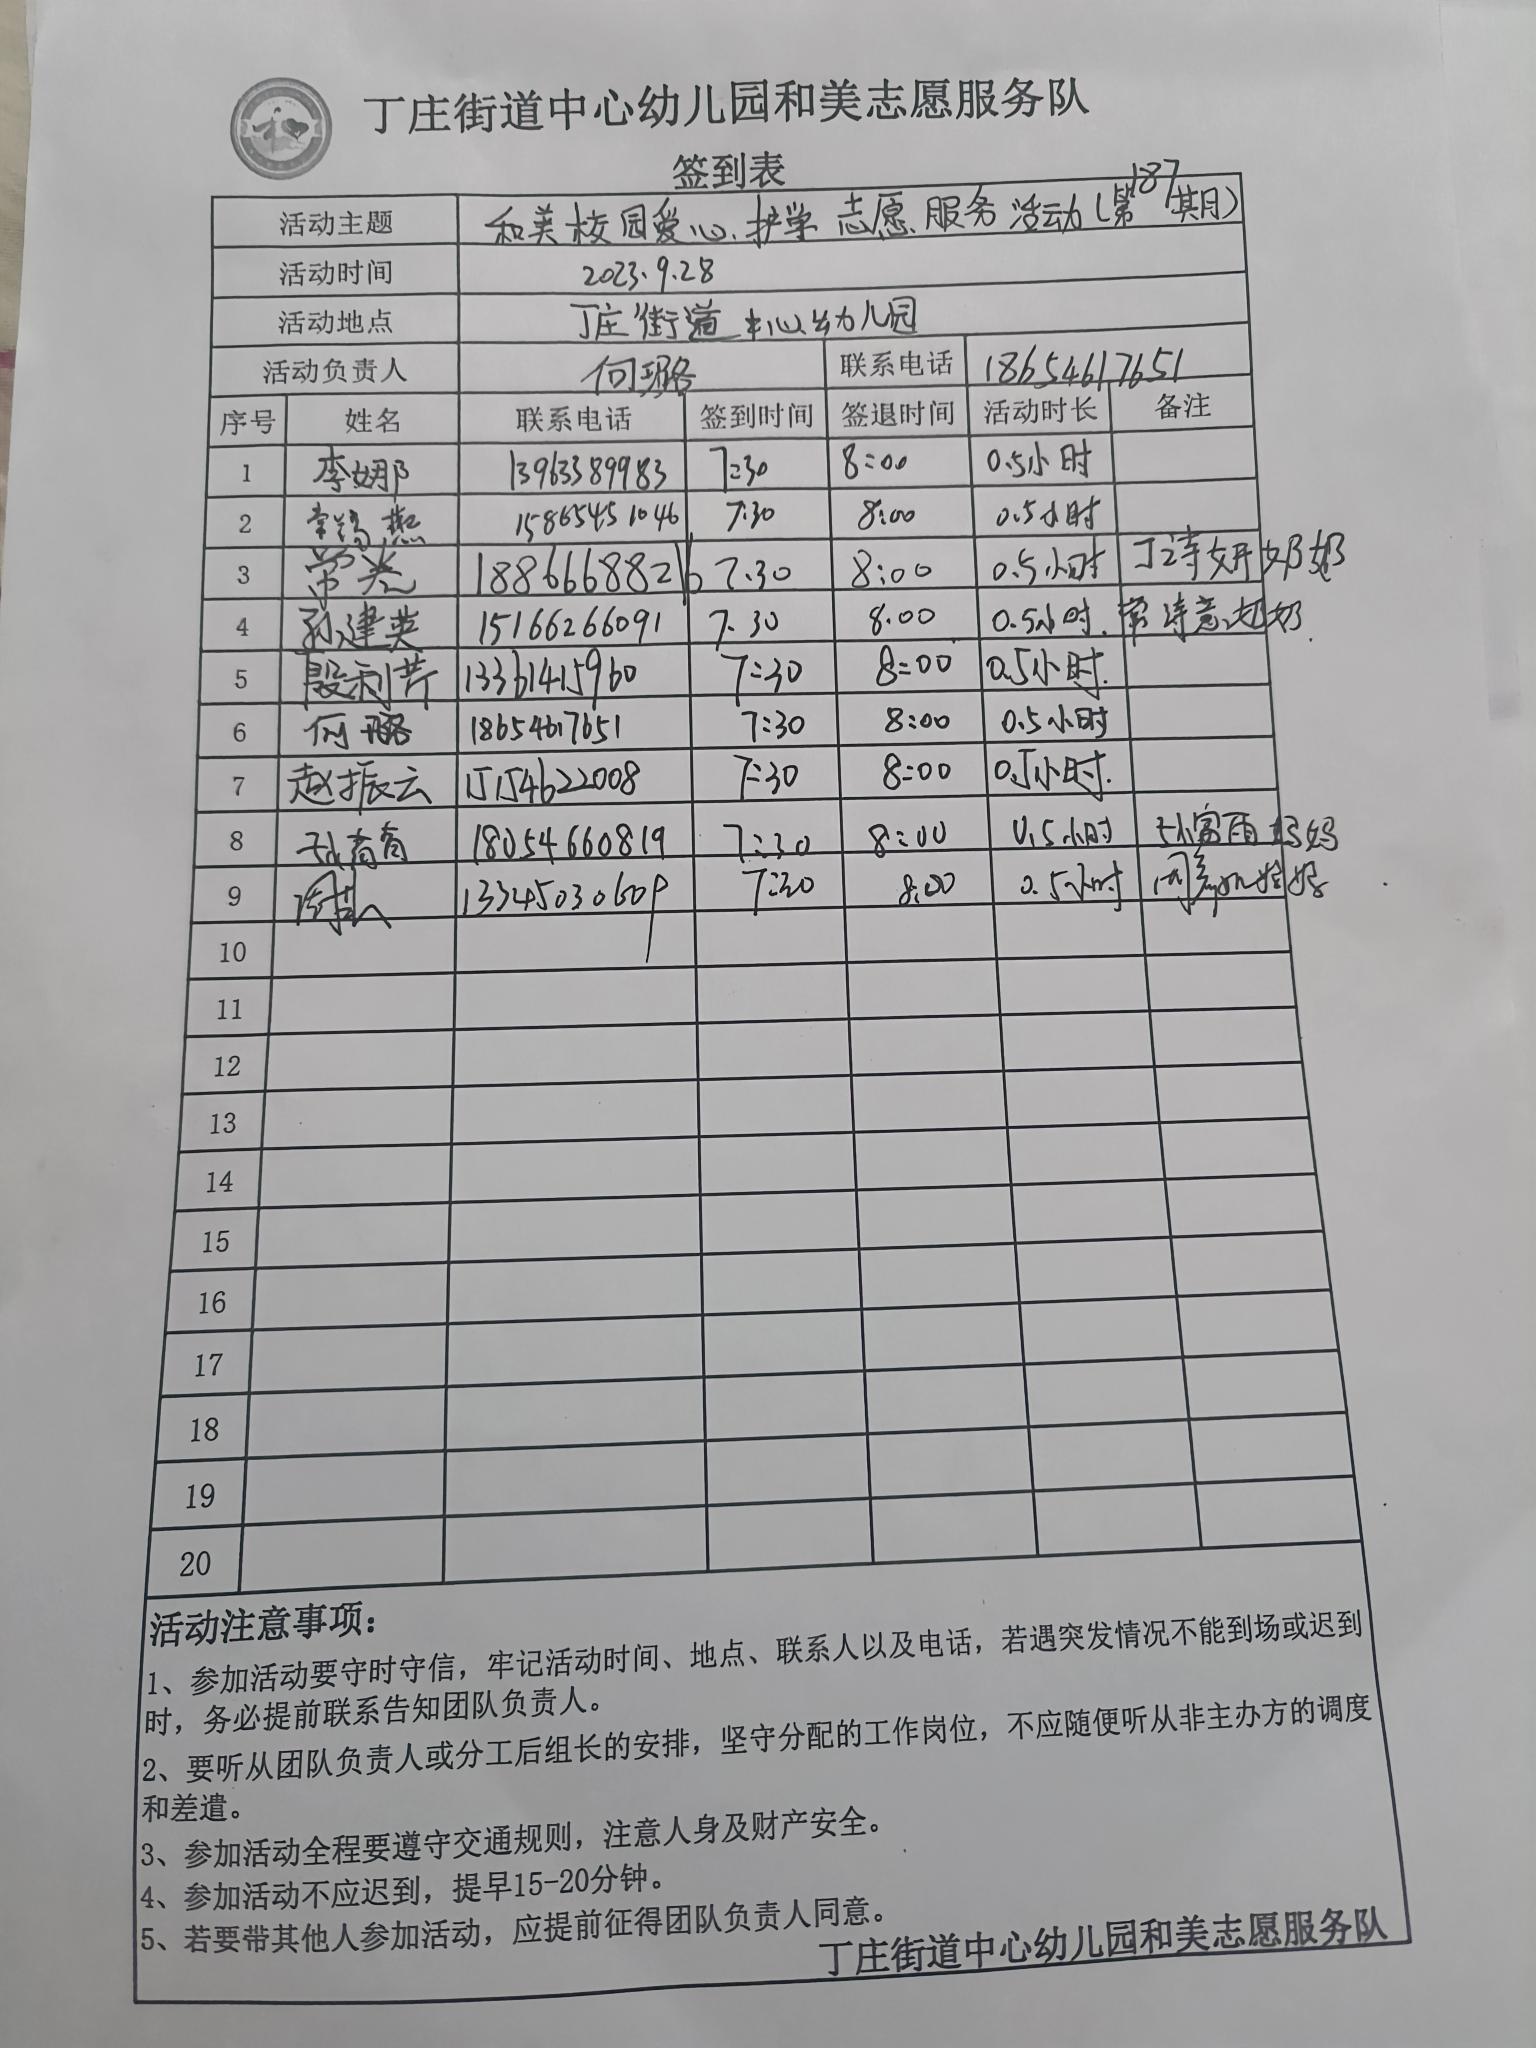 丁庄街道中心幼儿园和美志愿服务队
签到表
活动主题 和美校园爱心护学志愿服务活动(第187期)
活动时间 2023.9.28
活动地点 丁庄街道中心幼儿园
活动负责人 何璐 联系电话 18654617651
序号 姓名 联系电话 签到时间 签退时间 活动时长 备注
1 李娜 13963389983 7:30 8:00 0.5小时
2 常 燕 15865451046 7:30 8:00 0.5小时
3 常 7.30 8:00 0.5小时 丁诗妍奶奶
4 孙建英 15166266091 7.30 8.00 0.5小时. 常诗意奶奶.
5 殷利芹 13361415960 7:30 8:00 0.5小时.
6 何璐 18654617651 7:30 8:00 0.5小时
7 赵振云 15154622008 7:30 8:00 0.5小时.
8 18054660819 7:30 8:00 0.5小时 富雨妈妈
9 7:30 8:00 0.5小时
10
11
12
13
14
15
16
17
18
19
20
活动注意事项：
1、参加活动要守时守信，牢记活动时间、地点、联系人以及电话，若遇突发情况不能到场或迟到
时，务必提前联系告知团队负责人。
2、要听从团队负责人或分工后组长的安排，坚守分配的工作岗位，不应随便听从非主办方的调度
和差遣。
3、参加活动全程要遵守交通规则，注意人身及财产安全。
4、参加活动不应迟到，提早15-20分钟。
5、若要带其他人参加活动，应提前征得团队负责人同意。
丁庄街道中心幼儿园和美志愿服务队